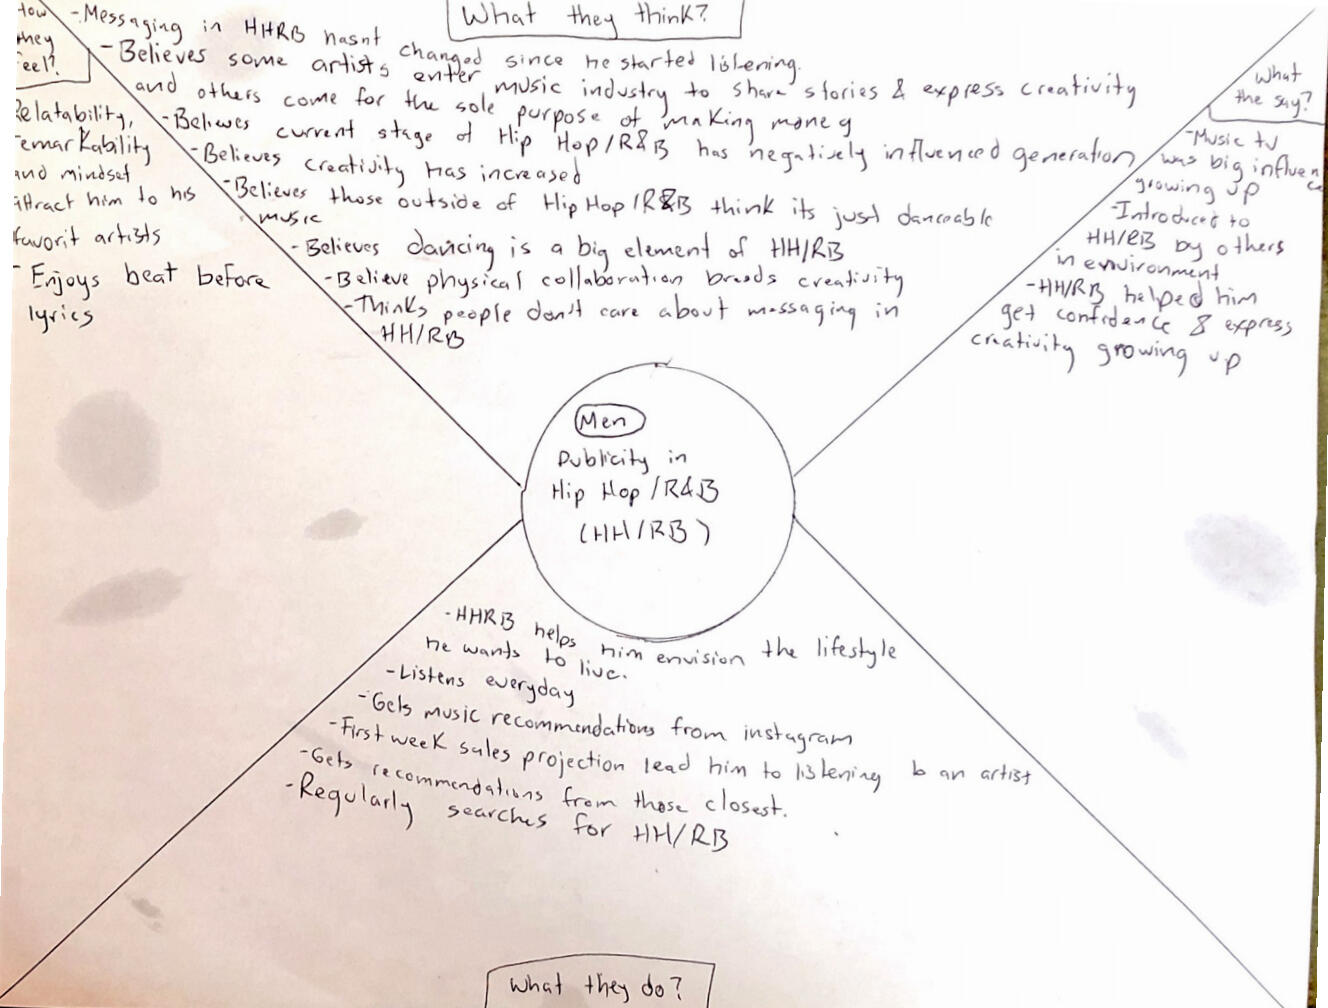 What they think?
-Messaging in HHRB hasnt changed since he started listening.
-Believes some artists enter music industry to share stories & express creativity
and others come for the sole purpose of making money
-Believes current stage of Hip Hop/R&B has negatively influenced generation
-Believes creativity has increased
-Believes those outside of Hip Hop/R&B think its just danceable
music
-Believes dancing is a big element of HH/RB
-Believe physical collaboration breeds creativity
-Thinks people don't care about messaging in
HH/RB
How
they
eel?
Relatability,
emarkability
and mindset
attract him to his
favorit artists
- Enjoys beat before
lyrics
What
the say?
-Music tv
was big influen
ce
growing up
-Introduced to
HH/RB by others
in environment
-HH/RB helped him
get confidence & express
creativity growing up
Men
Publicity in
Hip Hop/R&B
(HH/RB)
-HHRB helps him envision the lifestyle
he wants to live.
-Listens everyday
-Gets music recommendations from instagram
-First week sales projection lead him to listening to an artist
-Gets recommendations from those closest.
-Regularly searches for HH/RB
What they do?